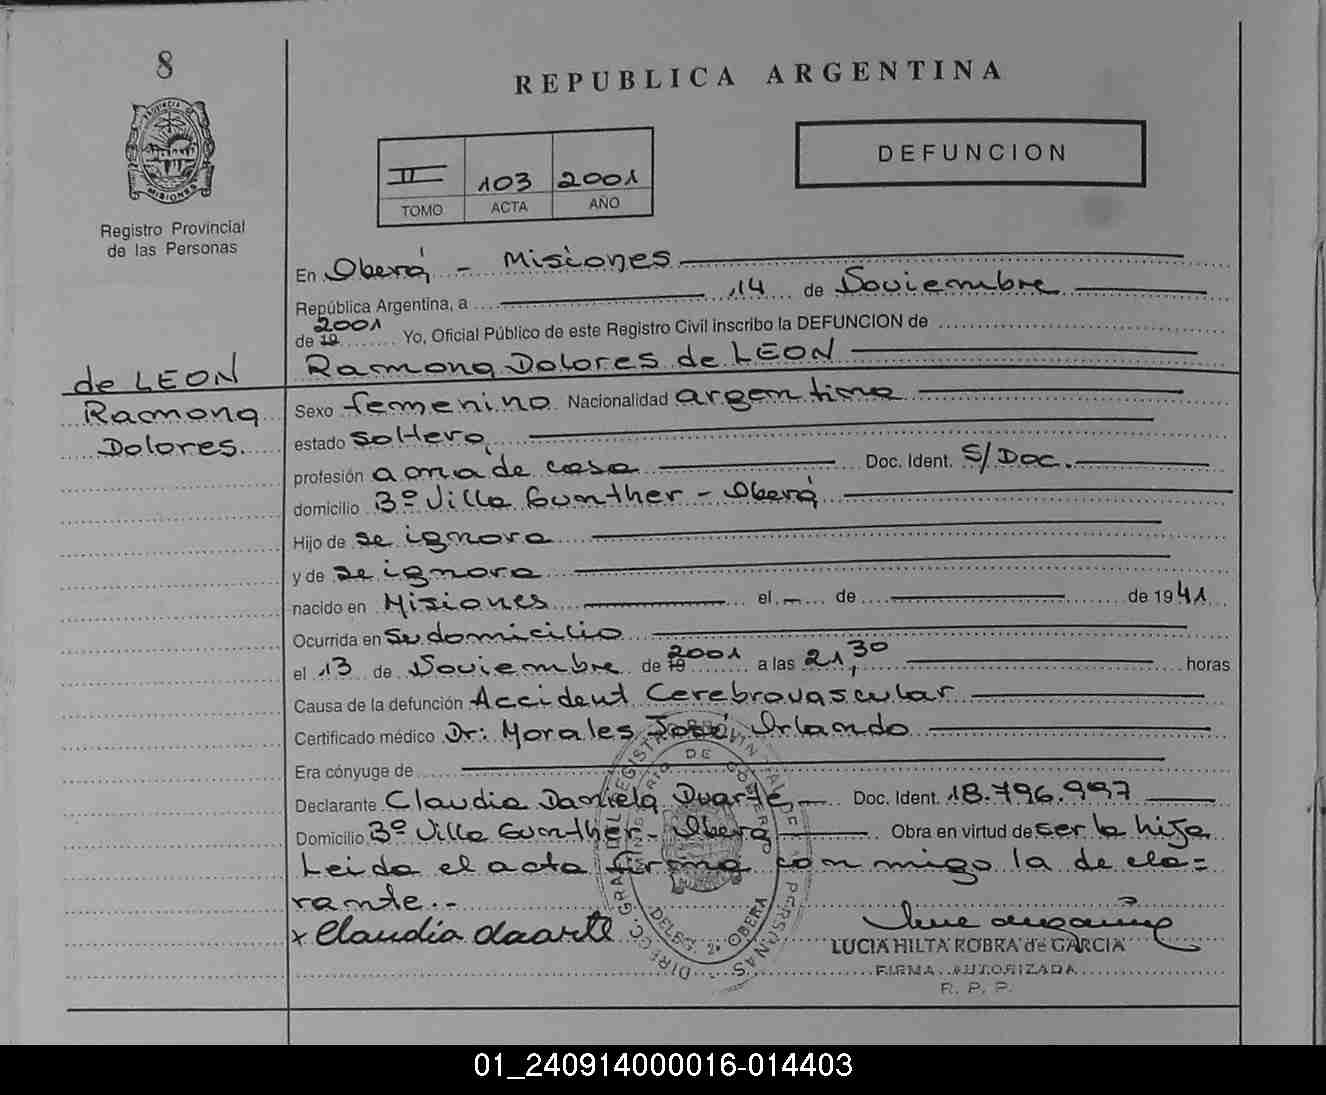 8
REPUBLICA ARGENTINA
PROVINCIA DE
MISIONES
Registro Provincial
de las Personas
II 103 2001
TOMO ACTA AÑO
DEFUNCION
En Oberá - Misiones
República Argentina, a 14 de Noviembre
de 19 2001 Yo, Oficial Público de este Registro Civil inscribo la DEFUNCION de
Ramona Dolores de LEON
de LEON
Ramona
Dolores.
Sexo femenino Nacionalidad argentina
estado soltera
profesión ama de casa Doc. Ident. S/Doc.
domicilio Bº Villa Gunther - Oberá
Hijo de se ignora
y de se ignora
nacido en Misiones el - de de 1941
Ocurrida en su domicilio
el 13 de Noviembre de 19 2001 a las 21,30 horas
Causa de la defunción Accident Cerebrovascular
Certificado médico Dr: Morales José Orlando
Era cónyuge de
Declarante Claudia Daniela Duarte Doc. Ident. 18.796.997
Domicilio Bº Villa Gunther - Oberá Obra en virtud de ser la hija
Leida el acta firma conmigo la decla=
rante.-
x Claudia duarte
LUCIA HILTA ROBRA de GARCIA
FIRMA AUTORIZADA
R. P. P.
01_240914000016-014403